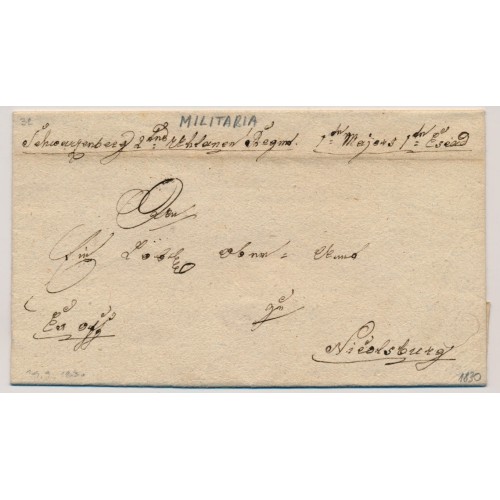 MILITARIA
Schwarzenberg 2ten Uhlanen Regmt. 1ten Majors 1ten Escad
An
Ein Löbl. Ober = Amt
Ex offo
zu
Nicolsburg
1830